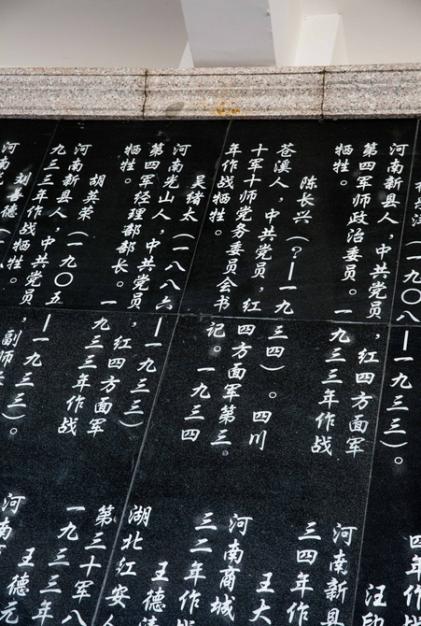 (一九〇八—一九三三)。
河南新县人,中共党员,红四方面军
第四军师政治委员。一九三三年作战
牺牲。
陈长兴(?—一九三四)。四川
苍溪人,中共党员,红四方面军第三
十军十师党务委员会书记。一九三四
年作战牺牲。
吴绪太(一八八六—一九三三)
河南光山人,中共党员,红四方面军
第四军经理部部长。一九三三年作战
牺牲。
胡英荣(一九〇五—一九三三)。
河南新县人,中共党员,副师
九三三年作战牺牲。
刘善德(
河南
四年作
汪印
河南新县
三四年作
王大
河南商城
三二年作战
王德清
湖北红安人
第三十军八
一九三三年
王德元
河南